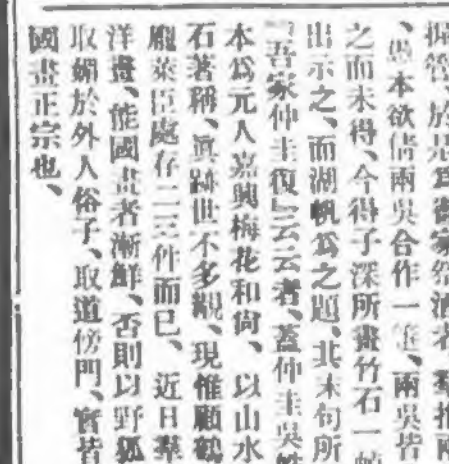 握管、於是爲書家祭酒者、羣推兩
、愚本欲倩兩吳合作一箑、兩吳皆
之而未得、今得子深所畫竹石一幀
出示之、而湖帆爲之題、其末句所
『吾家仲圭復』云云者、蓋仲圭吳姓
本爲元人嘉興梅花和尙、以山水
石著稱、眞跡世不多覯、現惟顧鶴
龐萊臣處存二三件而已、近日羣
洋畫、能國畫者漸鮮、否則以野狐
取媚於外人俗子、取道傍門、實皆
國畫正宗也、